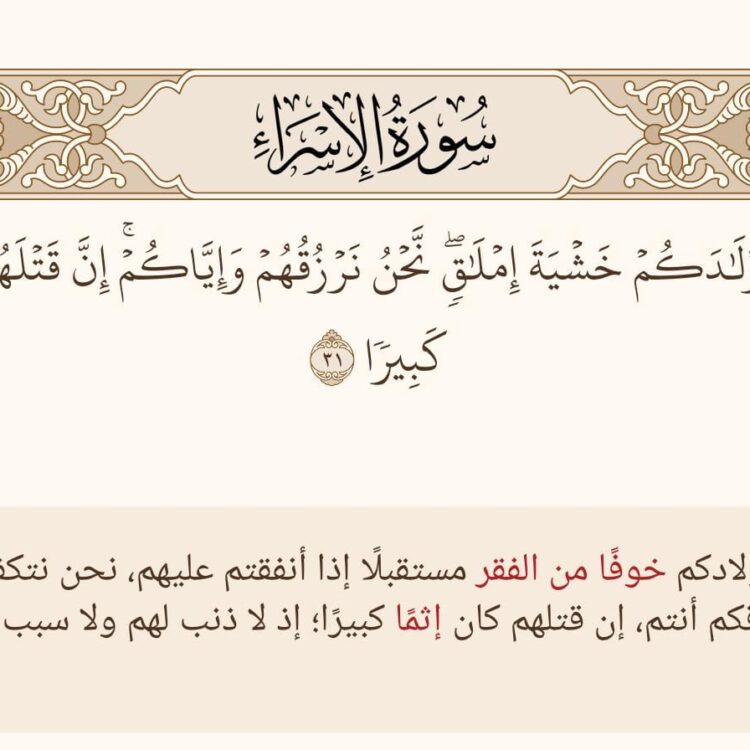 سُورَةُ الإِسْرَاءِ
وْلَٰدَكُمْ خَشْيَةَ إِمْلَٰقٖۖ نَّحْنُ نَرْزُقُهُمْ وَإِيَّاكُمْۚ إِنَّ قَتْلَهُ
كَبِيرٗا ٣١
ولادكم خوفًا من الفقر مستقبلًا إذا أنفقتم عليهم، نحن نتكف
قكم أنتم، إن قتلهم كان إثمًا كبيرًا؛ إذ لا ذنب لهم ولا سبب